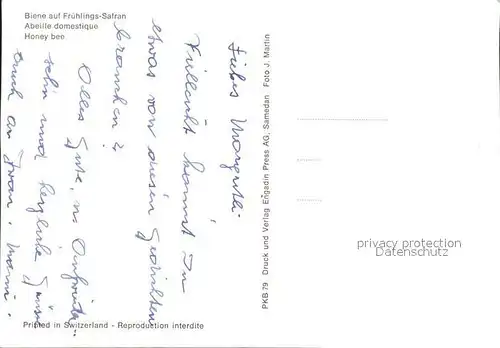 Biene auf Frühlings-Safran
Abeille domestique
Honey bee
Liebes Margritli.
Vielleicht kannst Du
etwas von diesen Gedichten
brauchen?
Alles Gute,
sehn und herzliche Grüsse
auch an Mami.
PKB 79 Druck und Verlag Engadin Press AG, Samedan Foto J. Martin
privacy protection
Datenschutz
Printed in Switzerland - Reproduction interdite